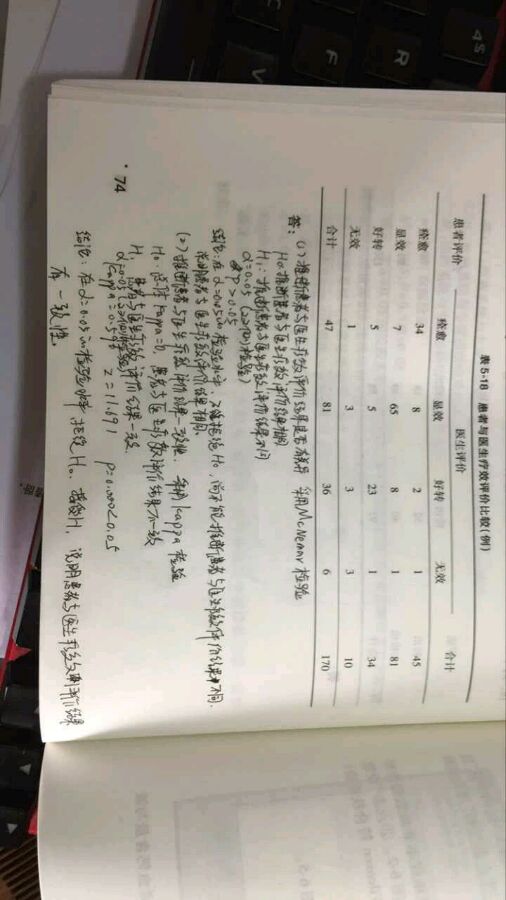 表5-18 患者与医生疗效评价比较(例)
患者评价 医生评价 合计
痊愈 显效 好转 无效
痊愈 34 8 2 1 45
显效 7 65 8 1 81
好转 5 5 23 1 34
无效 1 3 3 3 10
合计 47 81 36 6 170
答：(1)推断患者与医生疗效评价结果是否有差异 采用McNemar检验
H₀:推断患者与医生疗效评价结果相同
H₁:推断患者与医生疗效评价结果不同
α=0.05 (双侧检验)
P>0.05
结论:在α=0.05的检验水平,不能拒绝H₀,尚不能推断患者与医生疗效评价结果不同.
说明患者与医生疗效评价结果相同.
(2)推断患者与医生疗效评价结果一致性. 采用kappa检验
H₀:总体kappa=0,患者与医生疗效评价结果不一致
H₁ 患者与医生疗效评价结果一致
α=0.05 (双侧检验)
kappa = Z=11.691 P=0.000<0.05
结论:在α=0.05的检验水平拒绝H₀,接受H₁,说明患者与医生疗效评价结果
有一致性
· 74
4 $
R
F
V
C